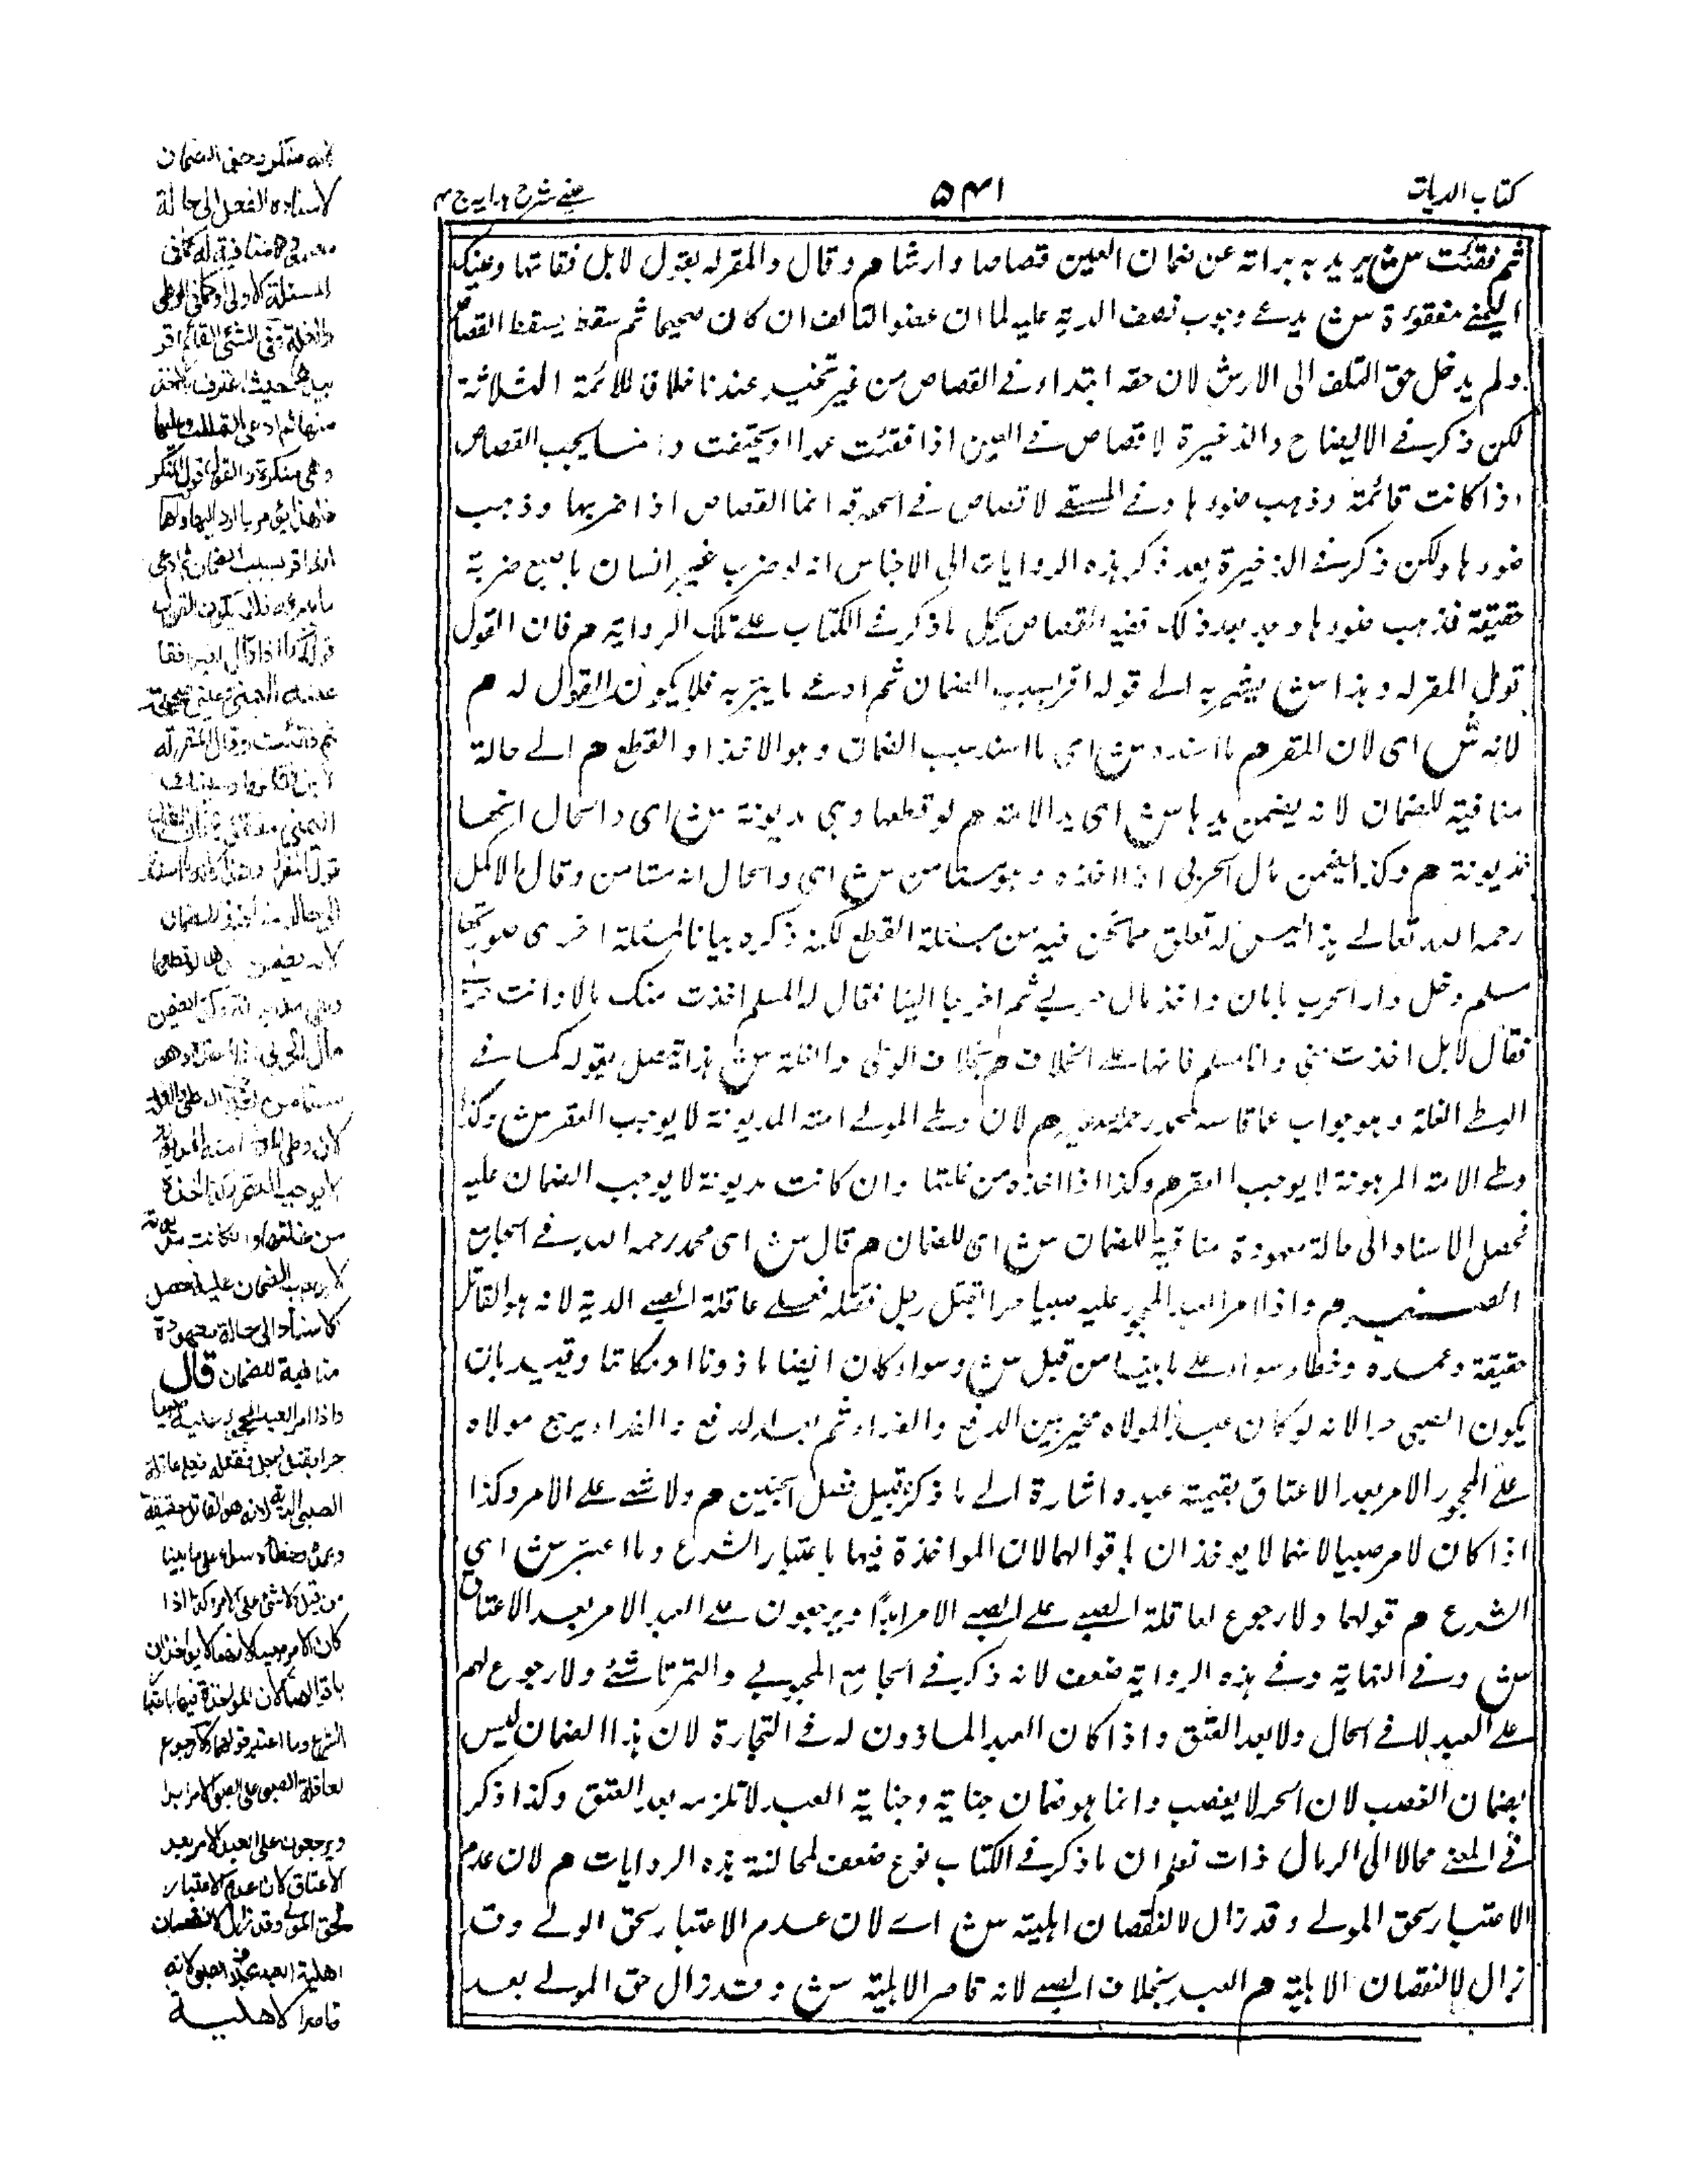 كتاب الديات
٥٤١
عينى شرح هدايه ج ٤
ثم فقئت ش يريد به براته عن ضمان العين قصاصا وارشا م وقال والمقر له يقول لا بل فقاتها وعينك
اليمنى مفقوءة ش يدعى وجوب نصف الدية عليه لما ان عضو التالف ان كان صحيحا ثم سقط يسقط القصاص
ولم يدخل حق التلف الى الارش لان حقه ابتداء فى القصاص من غير تخيير عندنا خلافا للائمة الثلاثة
لكن ذكر فى الايضاح والذخيرة لا قصاص فى العين اذا فقئت عمدا او يجب القصاص
اذا كانت قائمة وذهب ضوءها وفى لا قصاص فى الحدقة انما القصاص اذا ضربها وذهب
ضوءها ولكن ذكر فى الذخيرة بعد ذكر هذه الروايات الى الاجناس انه لو ضرب عين انسان باصبع ضربة
فذهب ضوءها وبعد ذلك ففيه القصاص ما ذكر فى الكتاب على تلك الرواية م فان القول
قول المقر له وهذا ش يشير به الى قوله اقر بسبب الضمان ثم ادعى ما يبريه فلا يكون القول له م
لانه ش اى لان المقر م ما اسنده ش اى ما اسند سبب الضمان وهو الاخذ او القطع م الى حالة
منافية للضمان لانه يضمن يدها ش اى يد الامة م لو قطعها وهى مديونة ش اى والحال انها
مديونة م وكذا يضمن مال الحربى اذا اخذه وهو مستامن ش اى والحال انه مستامن وقال الاكمل
رحمه الله تعالى هذا ليس له تعلق مما نحن فيه من مسئلة القطع لكنه ذكره بيانا لمسئلة اخرى صورتها
مسلم دخل دار الحرب بامان واخذ مال حربى ثم اخرجا الينا فقال له المسلم اخذت منك مالا وانت حربى
فقال لا بل اخذت منى وانا مسلم فانها على الخلاف م بخلاف الوطى والغلة ش هذا يتصل بقوله كما فى
الوطى الغلة وهو جواب عما قاسه محمد رحمه الله م لان وطى المولى امته المديونة لا يوجب العقر ش وكذا
وطى الامة المرهونة لا يوجب العقر م وكذا اذا اخذه من غلتها وان كانت مديونة لا يوجب الضمان عليه
فحصل الاسناد الى حالة معهودة منافية للضمان ش اى للضمان م قال ش اى محمد رحمه الله فى الجامع
الصغير م واذا امر العبد المحجور عليه صبيا حرا بقتل رجل فقتله فعلى عاقلة الصبى الدية لانه هو القاتل
حقيقة وعمده وخطاؤه سواء على ما بينا من قبل ش وسواء كان ايضا ماذونا او مكاتبا وقيد بان
يكون الصبى حرا لانه لو كان عبدا لمولاه تخير بين الدفع والفداء ثم الدفع والفداء يرجع مولاه
على المحجور الامر بعد الاعتاق بقيمة عبده اشارة الى ما ذكر قبيل فصل الجنين م ولا شىء على الامر وكذا
اذا كان لامر صبيا لانهما لا يوخذان باقوالهما لان المواخذة فيها باعتبار الشرع وما اعتبر ش اى
الشرع م قولهما ولا رجوع لعاقلة الصبى على الصبى الامر ابدا ويرجعون على العبد الامر بعد الاعتاق
ش وفى النهاية وفى هذه الرواية ضعف لانه ذكر فى الجامع المحبوبى والتمرتاشى ولا رجوع لهم
على العبد لا فى الحال ولا بعد العتق واذا كان العبد الماذون له فى التجارة لان هذا الضمان ليس
بضمان الغصب لان الحر لا يغصب وانما هو ضمان جناية وجناية العبد لا تلزمه بعد العتق وكذا ذكر
فى المغنى محالا الى الزيادات نعلم ان ما ذكر فى الكتاب نوع ضعف لمخالفة هذه الروايات م لان عدم
الاعتبار بحق المولى وقد زال لا لنقصان اهلية ش اى لان عدم الاعتبار بحق المولى وقد
زال لا لنقصان الاهلية م العبد بخلاف الصبى لانه قاصر الاهلية ش وقد زال حق المولى بعد
لاسناده الفعل الى حالة
معهودة منافية له كما فى
المسئلة الاولى وكما فى الوطى
والغلة وفى الشئ القائم اقر
بيدها حيث اعترف بالاخذ
منها ثم ادعى التملك عليها
وهى منكرة والقول قول المنكر
فلهذا يؤمر بالرد اليها ولهما
انه اقر بسبب الضمان ثم ادعى
ما يبرئه فلا يكون القول
قوله كما اذا قال لغيره فقأت
عينك اليمنى وعينى صحيحة
ثم فقئت وقال المقر له
لا بل فقأتها وعينك
اليمنى مفقوءة فان القول
قول المقر له وهذا لانه ما اسنده
الى حالة منافية للضمان
لانه يضمن يدها لو قطعها
وهى مديونة وكذا يضمن
مال الحربى اذا اخذه وهو
مستامن بخلاف الوطى والغلة
لان وطى المولى امته المديونة
لا يوجب العقر وكذا اخذه
من غلتها وان كانت مديونة
لا يوجب الضمان عليه فحصل
الاسناد الى حالة معهودة
منافية للضمان قال
واذا امر العبد المحجور عليه صبيا
حرا بقتل رجل فقتله فعلى عاقلة
الصبى الدية لانه هو القاتل حقيقة
وعمده وخطاه سواء على ما بينا
من قبل ولا شئ على الامر وكذا اذا
كان الامر صبيا لانهما لا يواخذان
باقوالهما لان المواخذة فيها باعتبار
الشرع وما اعتبر قولهما ولا رجوع
لعاقلة الصبى على الصبى الامر ابدا
ويرجعون على العبد الامر بعد
الاعتاق لان عدم الاعتبار
لحق المولى وقد زال لا لنقصان
اهلية العبد بخلاف الصبى لانه
قاصر الاهلية